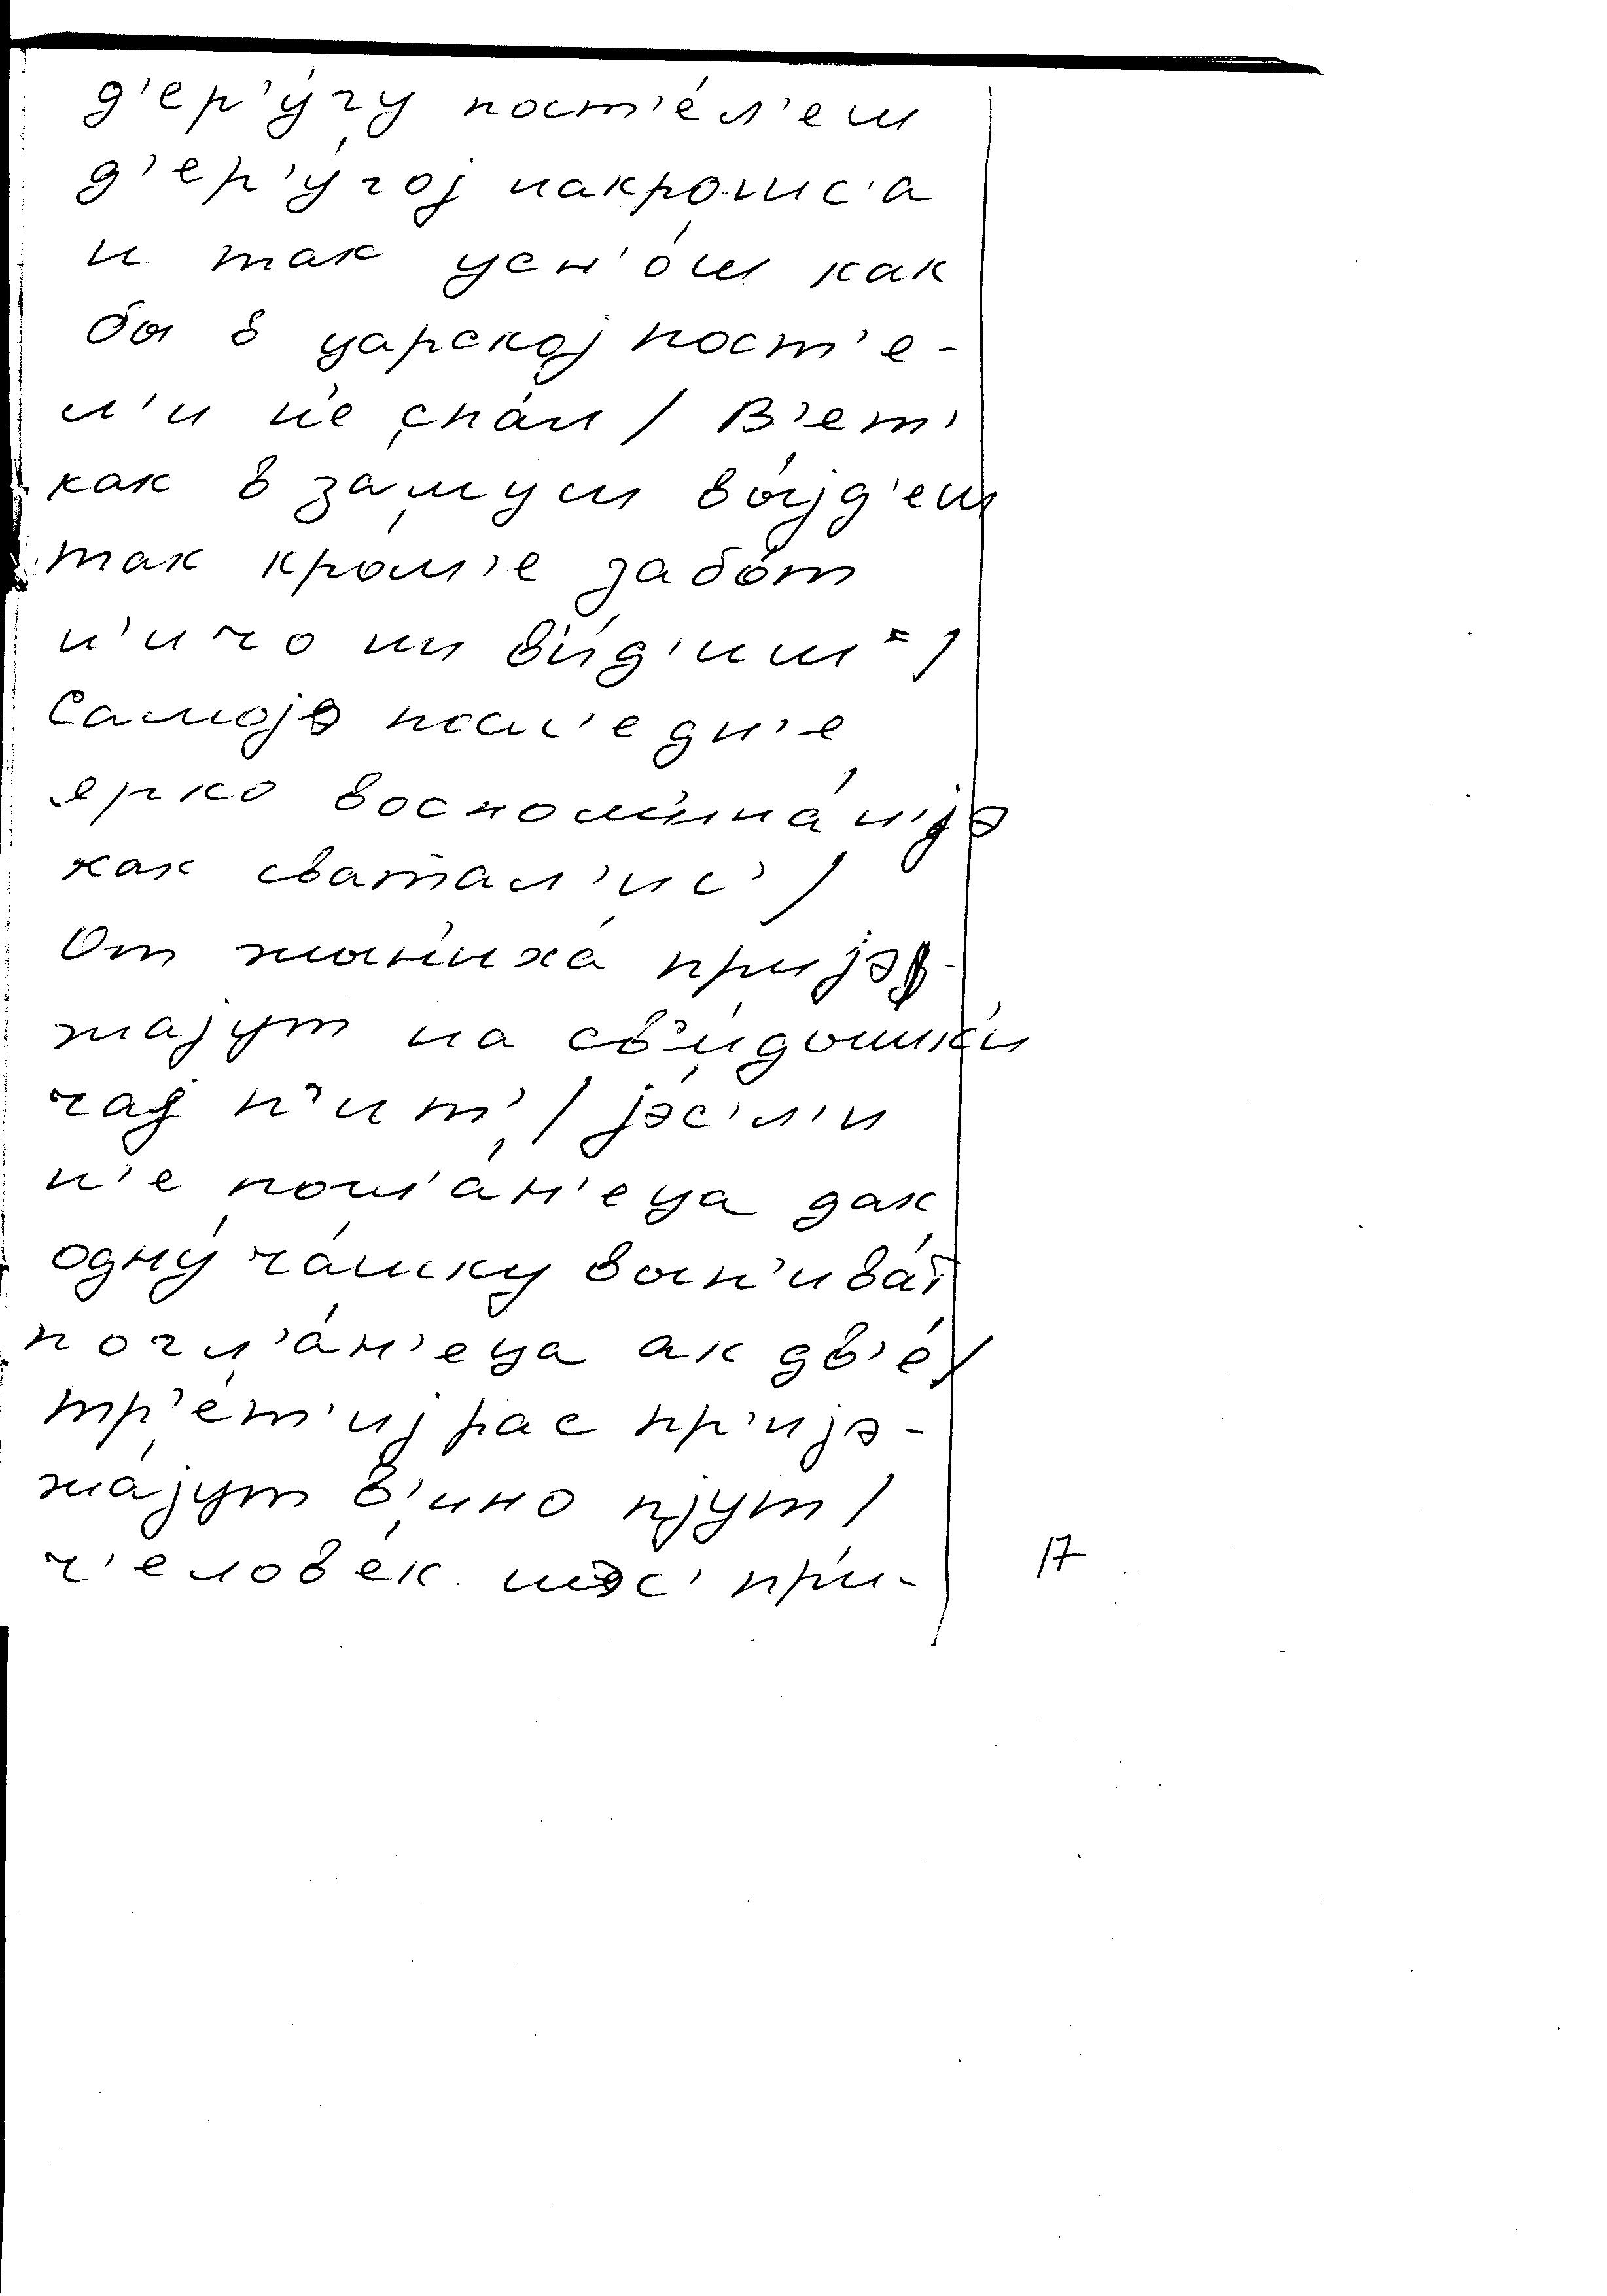 д'ер'у́гу пост'е́л'еш
д'ер'у́гој накрош́с'а
и так усн'о́ш как
бы в царској пост'е-
л'и н'е спа́л / В'ет'
как в за́муш вы́јд'еш
так кро́м'е забо́т
н'ичо ни ви́д'иш /
Самојэ посл'едн'е
ярко воспом'ина́н'јэ
как сватал'ис' /
От жын'иха́ пријэж-
жајут на св'и́дошки
чај п'ит' / јэс'л'и
н'е погл'а́н'еца дак
одну́ ча́шку вып'ива́т
погл'а́н'еца ак дв'е́ /
тр'е́т'иј рас пр'ијэ-
жа́јут в'ино пјут /
ч'елове́к шэс' при-
17